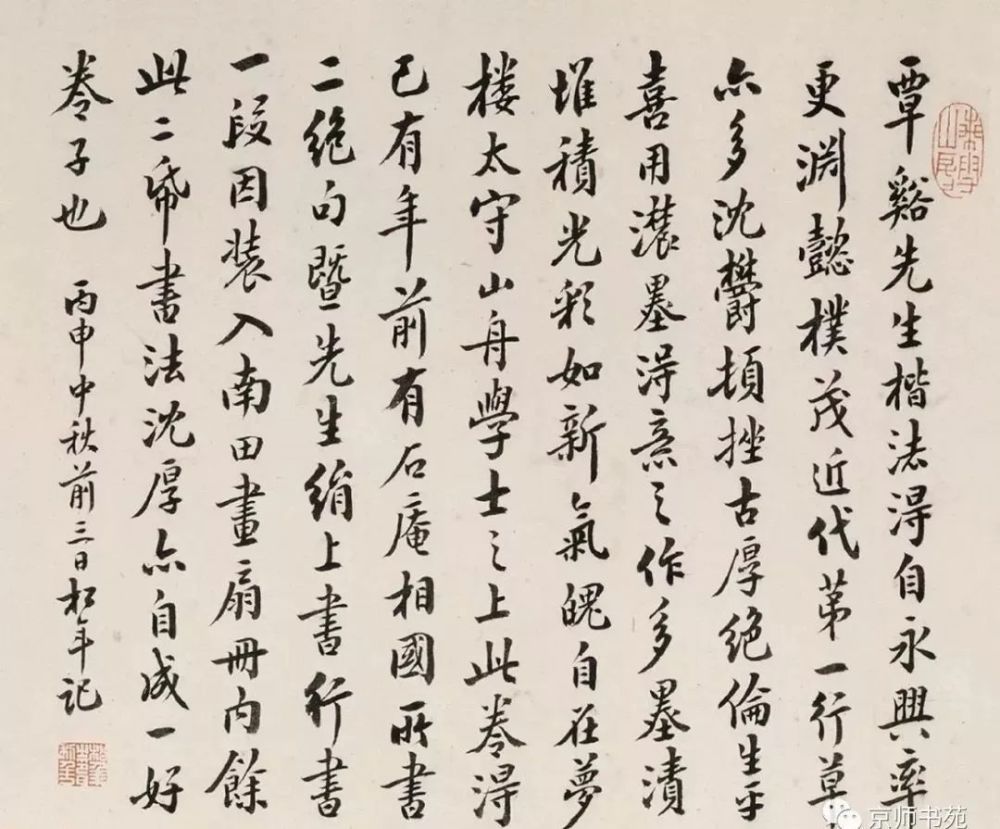 覃谿先生楷法得自永興率
更淵懿樸茂近代第一行草
亦多沈欝頓挫古厚絕倫生平
喜用濃墨得意之作多墨漬
堆積光彩如新氣魄自在夢
樓太守山舟學士之上此卷得
已有年前有石庵相國所書
二絕句暨先生絹上書行書
一段因裝入南田畫扇冊內餘
此二帋書法沈厚亦自成一好
卷子也 丙申中秋前三日松年記
京师书苑